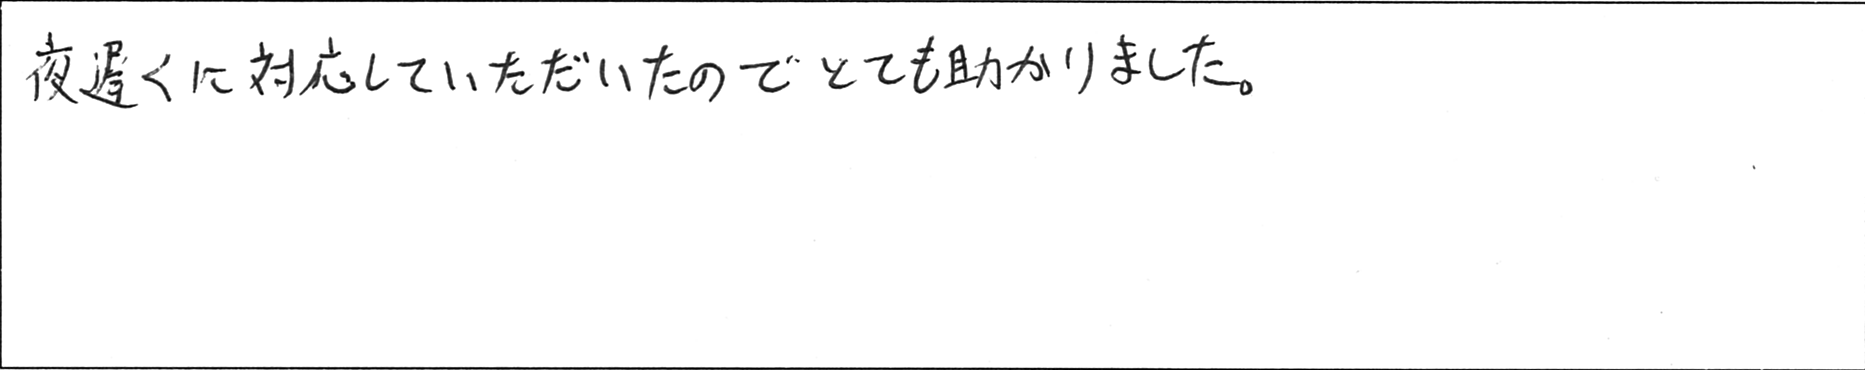 夜遅くに対応していただいたのでとても助かりました。